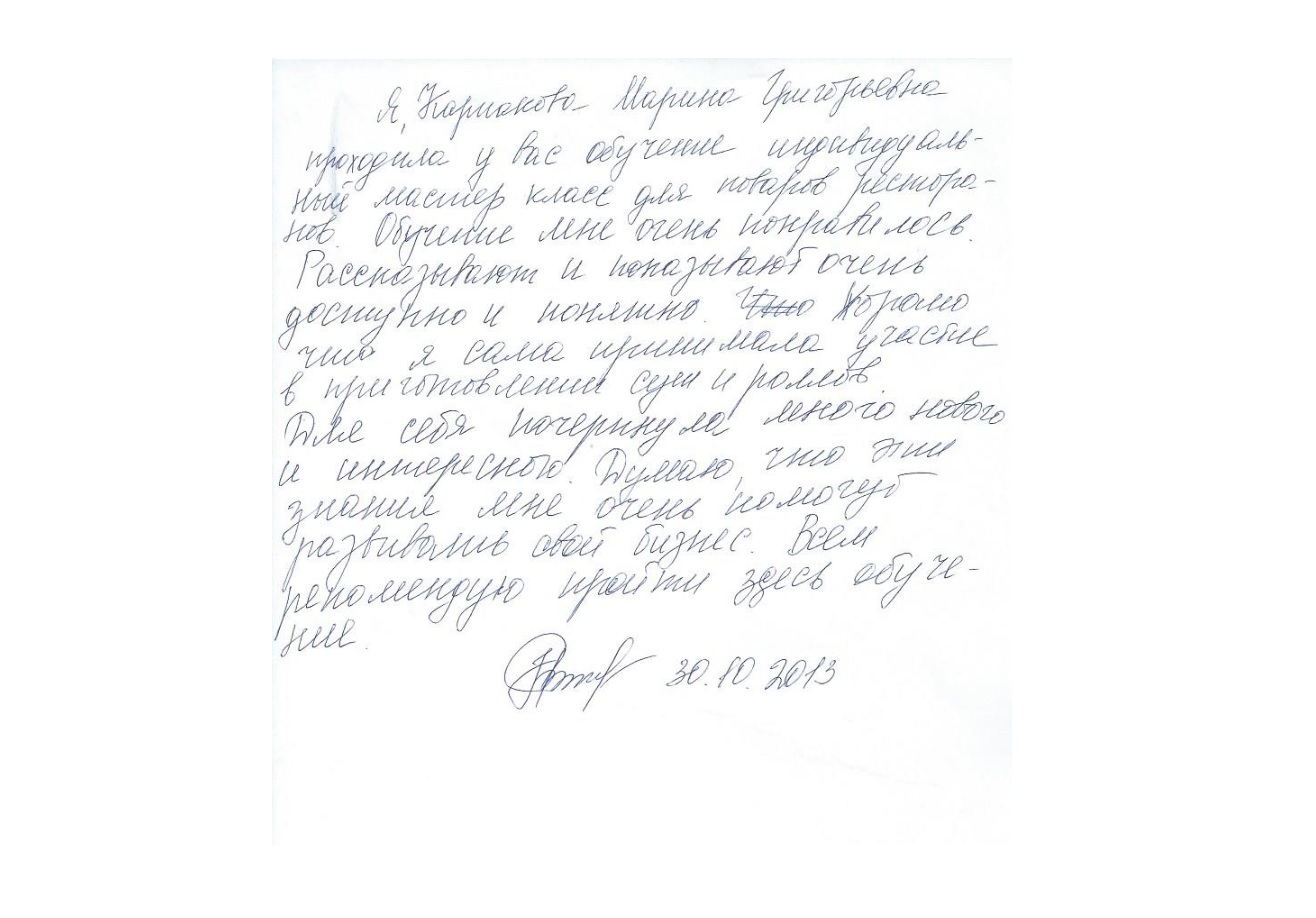 Я, Кармакова Марина Григорьевна
проходила у вас обучение индивидуаль-
ный мастер класс для поваров рестора-
нов. Обучение мне очень понравилось.
Рассказывают и показывают очень
доступно и понятно. Что Хорошо
что я сама принимала участие
в приготовлении суши и роллов.
Для себя почерпнула много нового
и интересного. Думаю, что эти
знания мне очень помогут
развивать свой бизнес. Всем
рекомендую пройти здесь обуче-
ние.
30.10.2013